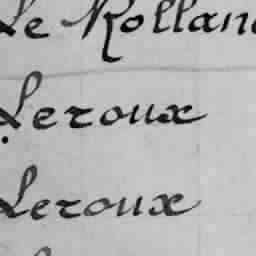 Le Rolland
Leroux
Leroux